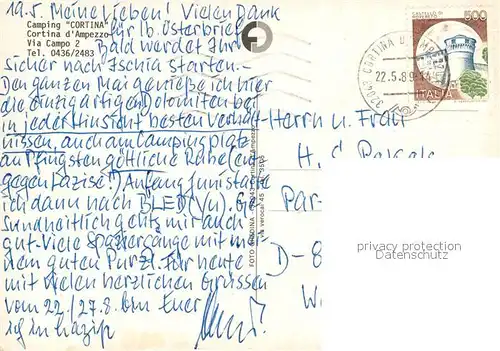 19.5. Meine Lieben! Vielen Dank
für lb. Osterbrief
Bald werdet Ihr
sicher nach Ischia starten.-
Den ganzen Mai genieße ich hier
die einzigartigen Dolomiten bei
in jeder Hinsicht besten Verhält-
nissen, auch am Campingplatz
an Pfingsten göttliche Ruhe (ent-
gegen Lazise!) Anfang Juni starte
ich dann nach BLED (Yu). Ge-
sundheitlich geht's mir auch
gut. Viele Spaziergänge mit mei-
nem guten Purzl. Für heute
mit vielen herzlichen Grüssen
vom 22./27.8. bin Euer
ich in Lazise
Camping "CORTINA"
Cortina d'Ampezzo
Via Campo 2
Tel. 0436/2483
FOTO GHEDINA
via verocai 45
CASTELLO DI
ROVERETO
500
ITALIA
32043 CORTINA D'AMPEZZO
22.5.89
Herrn u. Frau
H.
Par-
D-8
W
privacy protection
Datenschutz